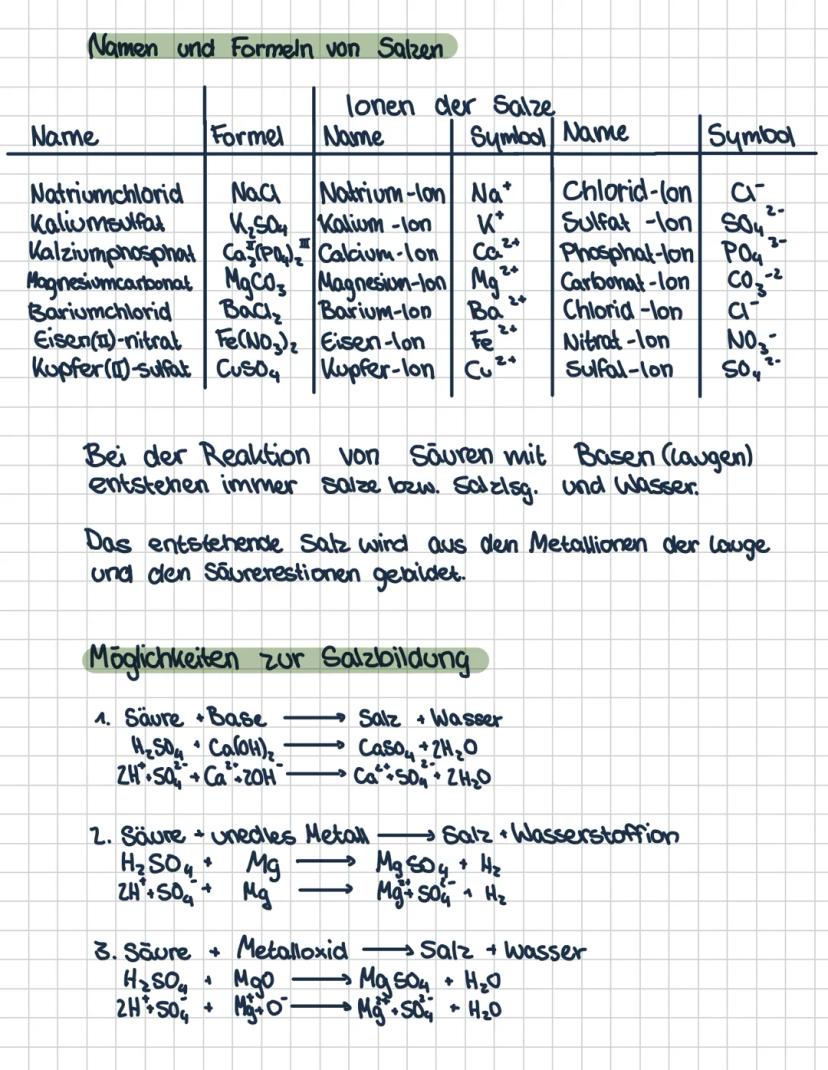 Namen und Formeln von Salzen
Ionen der Salze
Name Formel Name Symbol Name Symbol
Natriumchlorid NaCl Natrium-Ion Na⁺ Chlorid-Ion Cl⁻
Kaliumsulfat K₂SO₄ Kalium-Ion K⁺ Sulfat-Ion SO₄²⁻
Kalziumphosphat Ca₃ᴵᴵ(PO₄)₂ᴵᴵᴵ Calcium-Ion Ca²⁺ Phosphat-Ion PO₄³⁻
Magnesiumcarbonat MgCO₃ Magnesium-Ion Mg²⁺ Carbonat-Ion CO₃⁻²
Bariumchlorid BaCl₂ Barium-Ion Ba²⁺ Chlorid-Ion Cl⁻
Eisen(II)-nitrat Fe(NO₃)₂ Eisen-Ion Fe²⁺ Nitrat-Ion NO₃⁻
Kupfer(II)-sulfat CuSO₄ Kupfer-Ion Cu²⁺ Sulfat-Ion SO₄²⁻
Bei der Reaktion von Säuren mit Basen (Laugen)
entstehen immer Salze bzw. Salzlsg. und Wasser.
Das entstehende Salz wird aus den Metallionen der Lauge
und den Säurerestionen gebildet.
Möglichkeiten zur Salzbildung
1. Säure + Base ⟶ Salz + Wasser
H₂SO₄ + Ca(OH)₂ ⟶ CaSO₄ + 2H₂O
2H⁺+SO₄²⁻ + Ca²⁺+2OH⁻ ⟶ Ca²⁺+SO₄²⁻ + 2H₂O
2. Säure + unedles Metall ⟶ Salz + Wasserstoffion
H₂SO₄ + Mg ⟶ MgSO₄ + H₂
2H⁺+SO₄²⁻ + Mg ⟶ Mg²⁺+SO₄²⁻ + H₂
3. Säure + Metalloxid ⟶ Salz + Wasser
H₂SO₄ + MgO ⟶ MgSO₄ + H₂O
2H⁺+SO₄²⁻ + Mg²⁺+O⁻ ⟶ Mg²⁺+SO₄²⁻ + H₂O